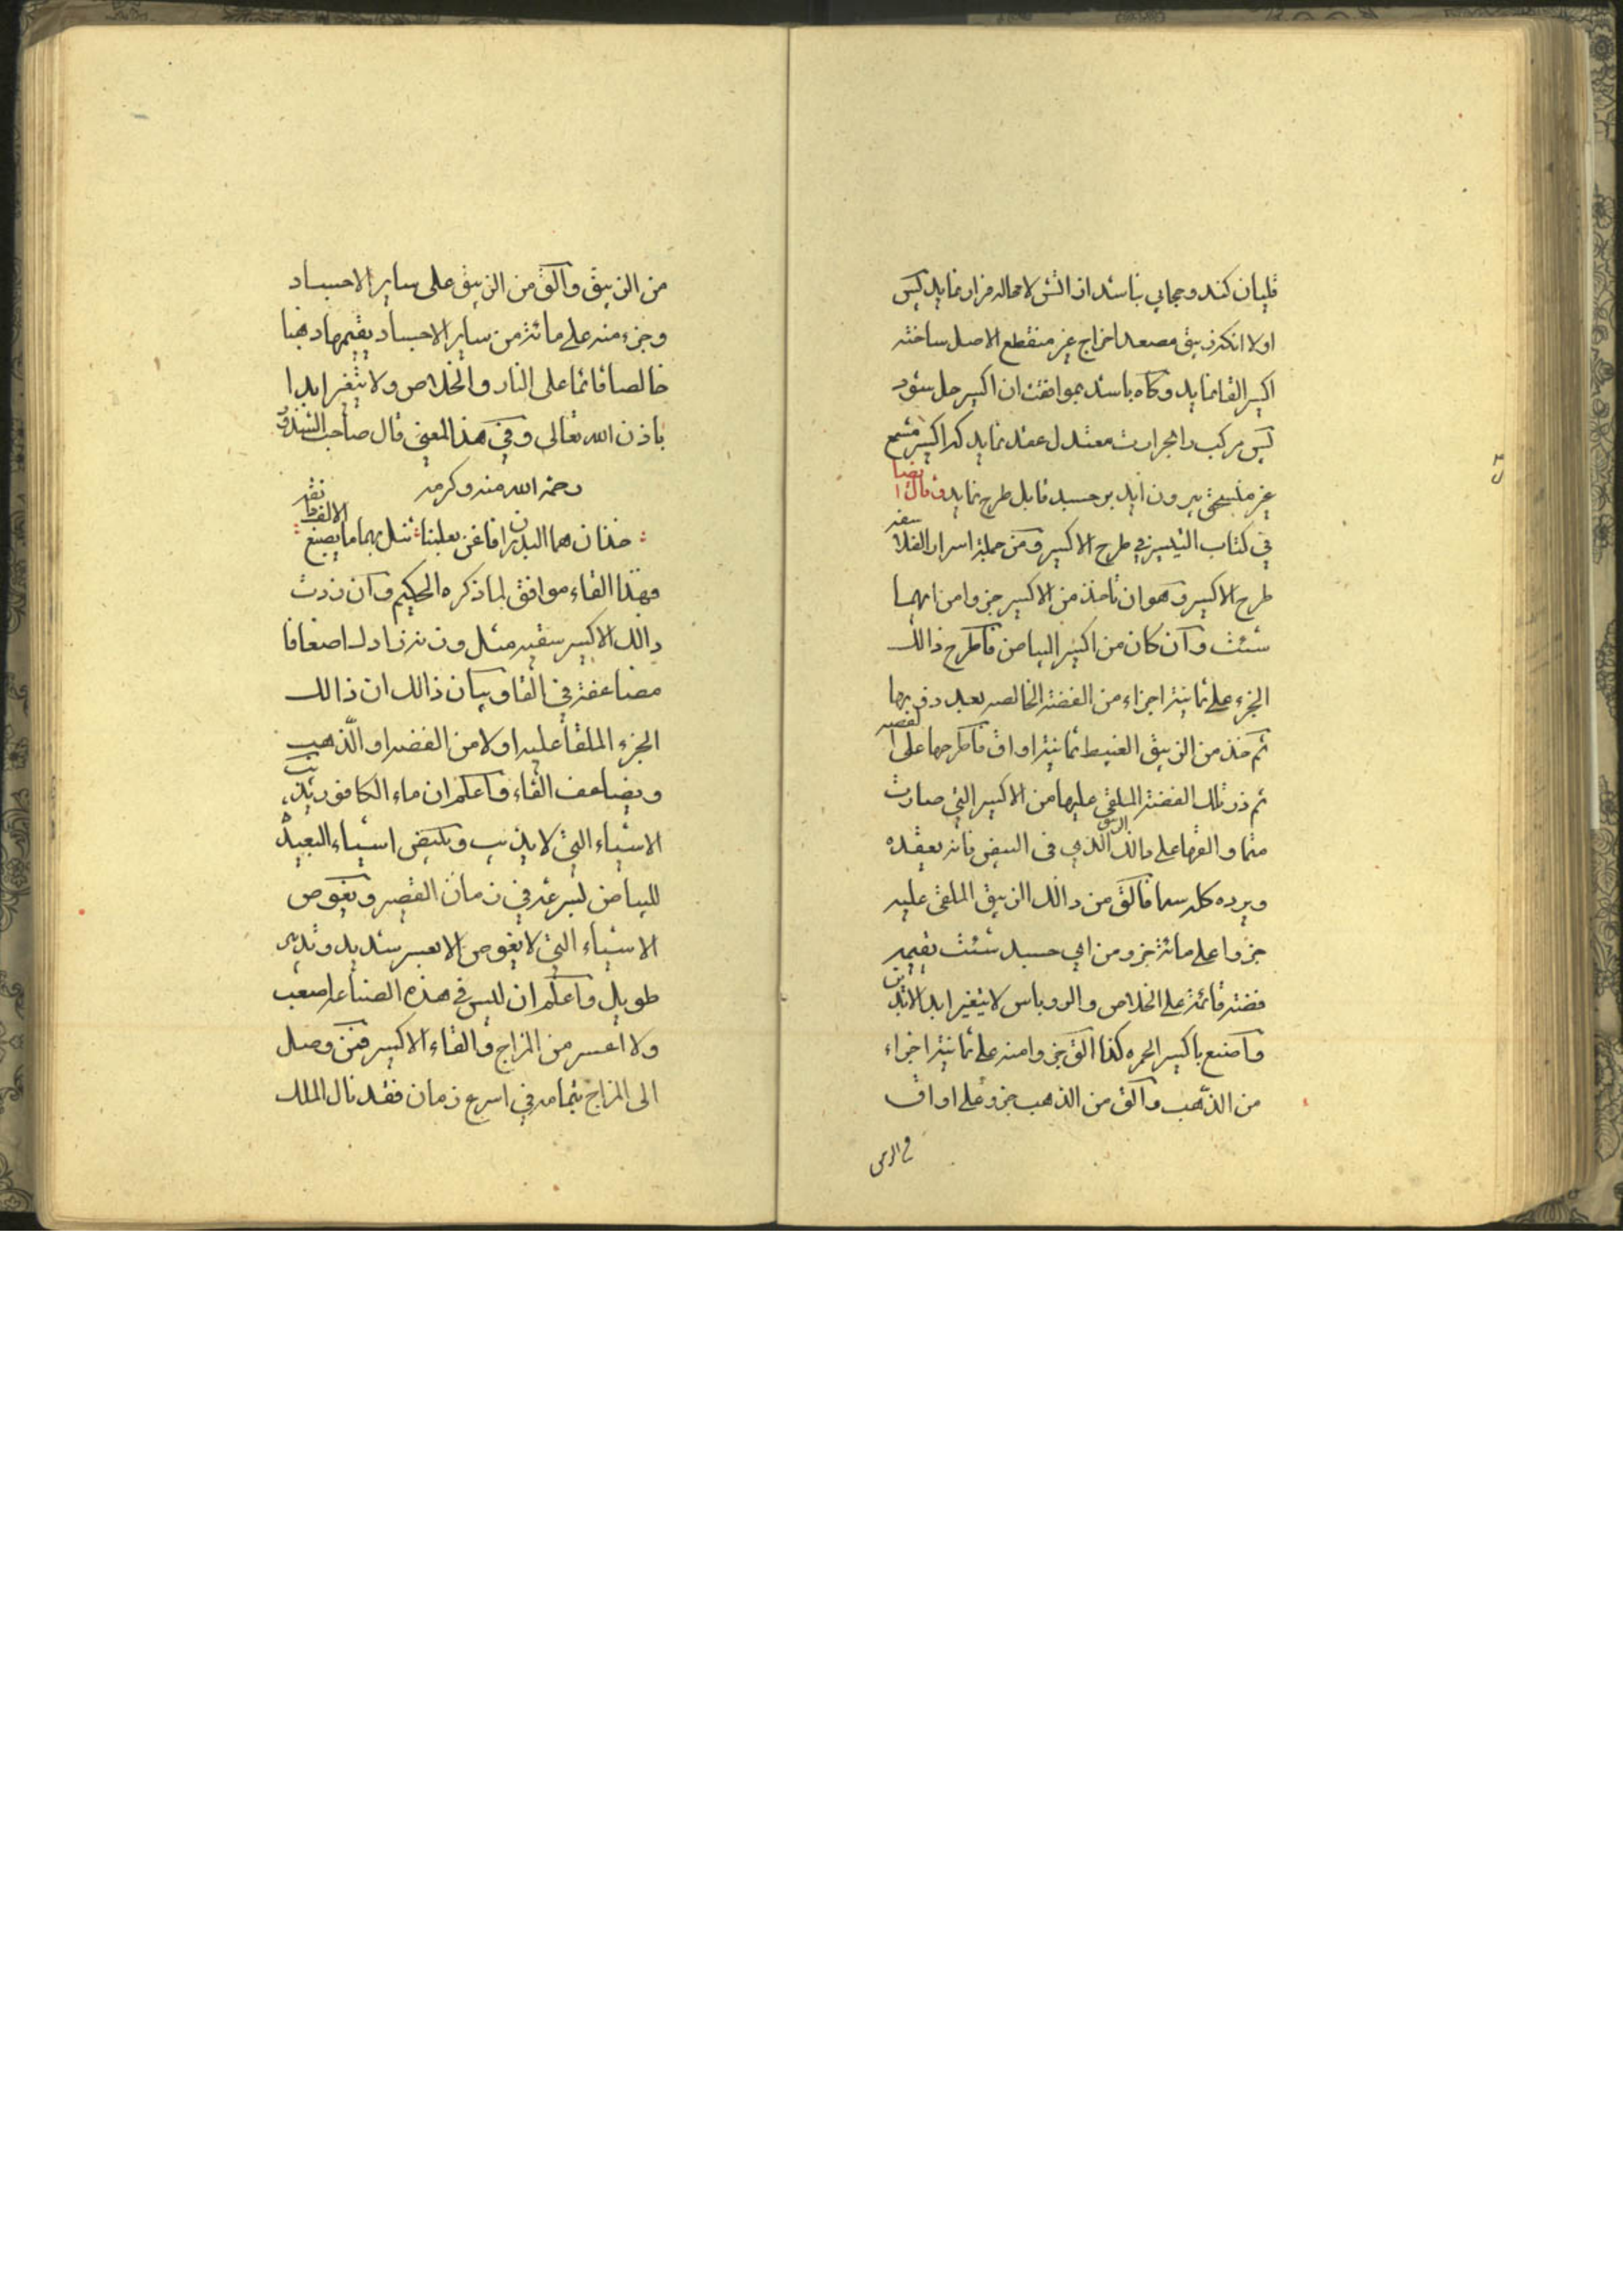 قلیان کند و حجابی نباشد از اتش لا محاله فرار نماید پس
اولا انکه زیبق مصعد اخراج غیر منقطع الاصل ساخته
اکسیر القا نماید و کاه باشد بموافقت ان اکسیر حل شود
پس مرکب را بحرارت معتدل عقد نماید که اکسیر مشمع
غیر منسحق بیرون اید بر جسد قابل طرح نماید و قال ایضا
في كتاب التيسير في طرح الاكسير و من جملة اسرار الفلاسفه
طرح الاكسير و هو ان تاخذ من الاكسير جزوا من ايهما
شئت و ان كان من اكسير البياض فاطرح ذالك
الجزء على ثمانية اجزاء من الفضة الخالصه بعد ذوبها
ثم خذ من الزيبق الغبيط ثمانية اواق فاطرحها على الفضه
ثم ذر تلك الفضة الملقى عليها من الاكسير التي صارت
و القها على ذالك الزيبق الذي في فانه يعقده
و يرده كله سما فالق من ذالك الزيبق الملقى عليه
جزوا على مائة جزو من اي جسد شئت يقيمه
فضة قائمة على الخلاص و الروباس لا يتغير ابد الابدين
و اصنع باكسير الحمره كذا الق جزوا منه على ثمانية اجزاء
من الذهب و الق من الذهب جزو على اواق
من الزيبق و الق من الزيبق على ساير الاجساد
و جزء منه على مائة من ساير الاجساد يقيمها ذهبا
خالصا قائما على النار و الخلاص و لا يتغير ابدا
باذن الله تعالى و في هذ المعنى قال صاحب الشذور
رحمة الله منه و كرمه
خذان هما البدران فاغن بعلمنا تنل بهما ما يصبغ الالف
فهذا القاء موافق لما ذكره الحكيم و ان زدت
ذالك الاكسير سقيه مثل وزنه زاد لك اضعافا
مضاعفة في القا و بيان ذالك ان ذالك
الجزء الملقا عليه اولا من الفضه او الذهب
و يضاعف القاء و اعلم ان ماء الكافور يذيب
الاشياء التي لا يذيب و يبيض اشياء البعيدة
للبياض لسرعة في زمان القصير و يغوص
الاشياء التي لا يغوص الا بعسر شديد و تدبير
طويل و اعلم ان ليس في هذه الصناعة اصعب
و لا اعسر من المزاج و القاء الاكسير فمن وصل
الى المزاج بتمامه في اسرع زمان فقد نال الملك